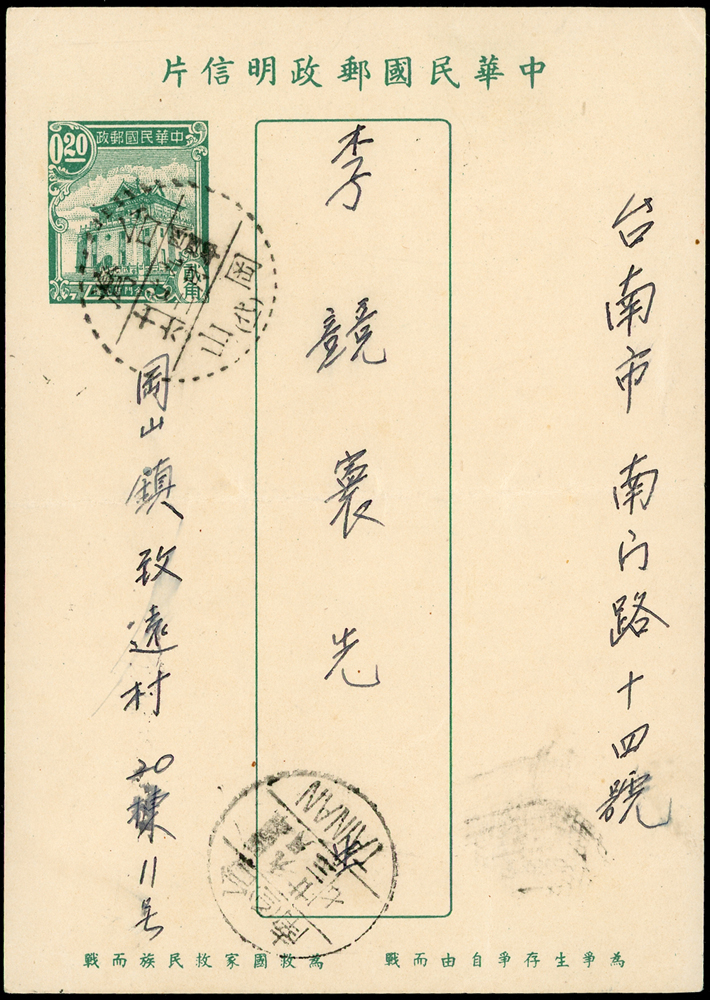 中華民國郵政明信片
中華民國郵政
0.20
台南市南门路十四號
李競寰先
岡山鎮致遠村20棟11号
岡山
TAINAN
為爭生存爭自由而戰
為救國家救民族而戰